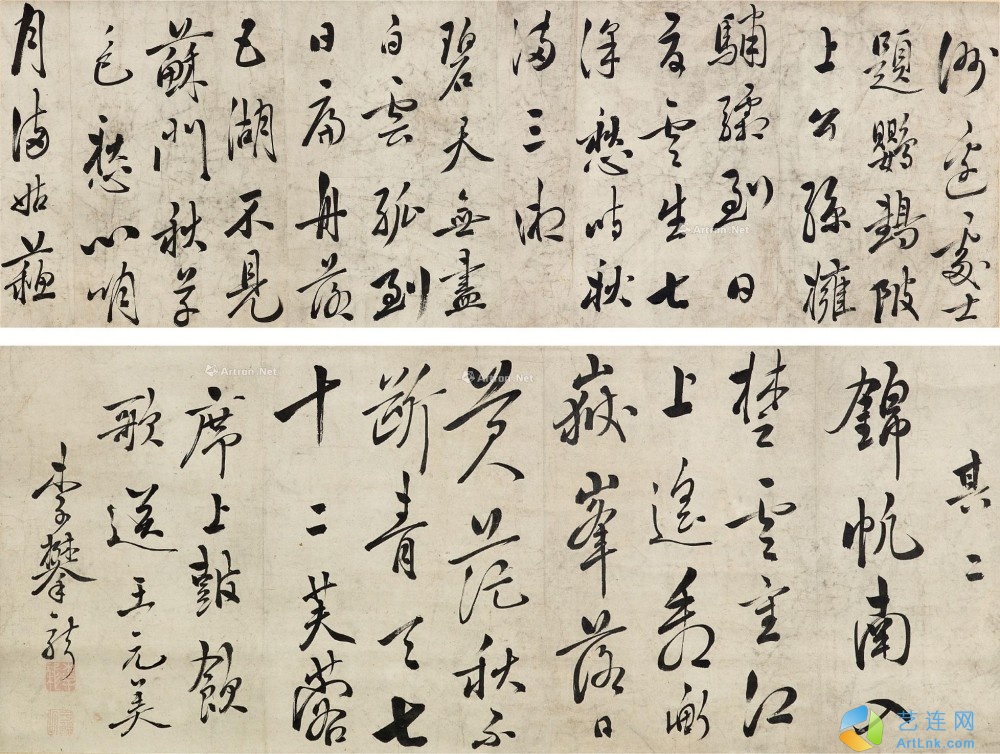 洲邊處士
題鸚鵡陂
上公孫擁
到日
夜雲生七
澤愁時秋
滿三湘
碧天無盡
白雲孤到
日扁舟落
五湖不見
蘇門秋草
色愁心明
月滿姑蘇
Artron.Net
其二
錦帆南入
楚雲重江
上遙看衡
嶽峯落日
蒼茫秋不
斷青天七
十二芙蓉
席上鼓飲
歌送王元美
李攀龍
Artron.Net
Artron.Net
艺连网
ArtLnk.com